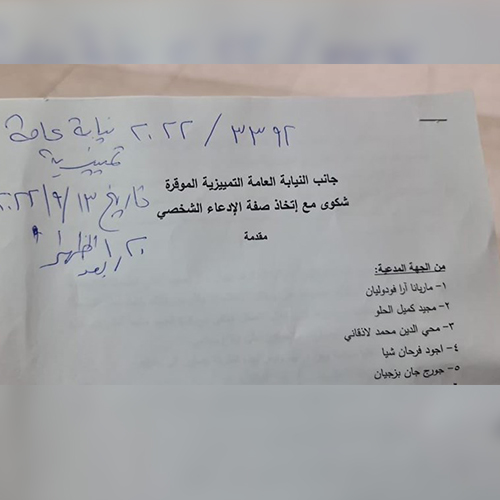 ٣٣٩٢ / ٢٠٢٢ نيابة عامة
تمييزية
تاريخ ١٣/٩/٢٠٢٢
بعد الظهر
جانب النيابة العامة التمييزية الموقرة
شكوى مع إتخاذ صفة الإدعاء الشخصي
مقدمة
من الجهة المدعية:
١- ماريانا آرا فودوليان
٢- مجيد كميل الحلو
٣- محي الدين محمد لاذقاني
٤- اجود فرحان شيا
٥- جورج جان بزجيان